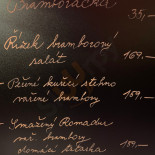 Bramboračka 35,-
Řízek bramborový
salát 169.-
Pečené kuřecí stehno
vařené brambory 159.-
Smažený Romadur
vař. brambory
domácí tatarka 159.-